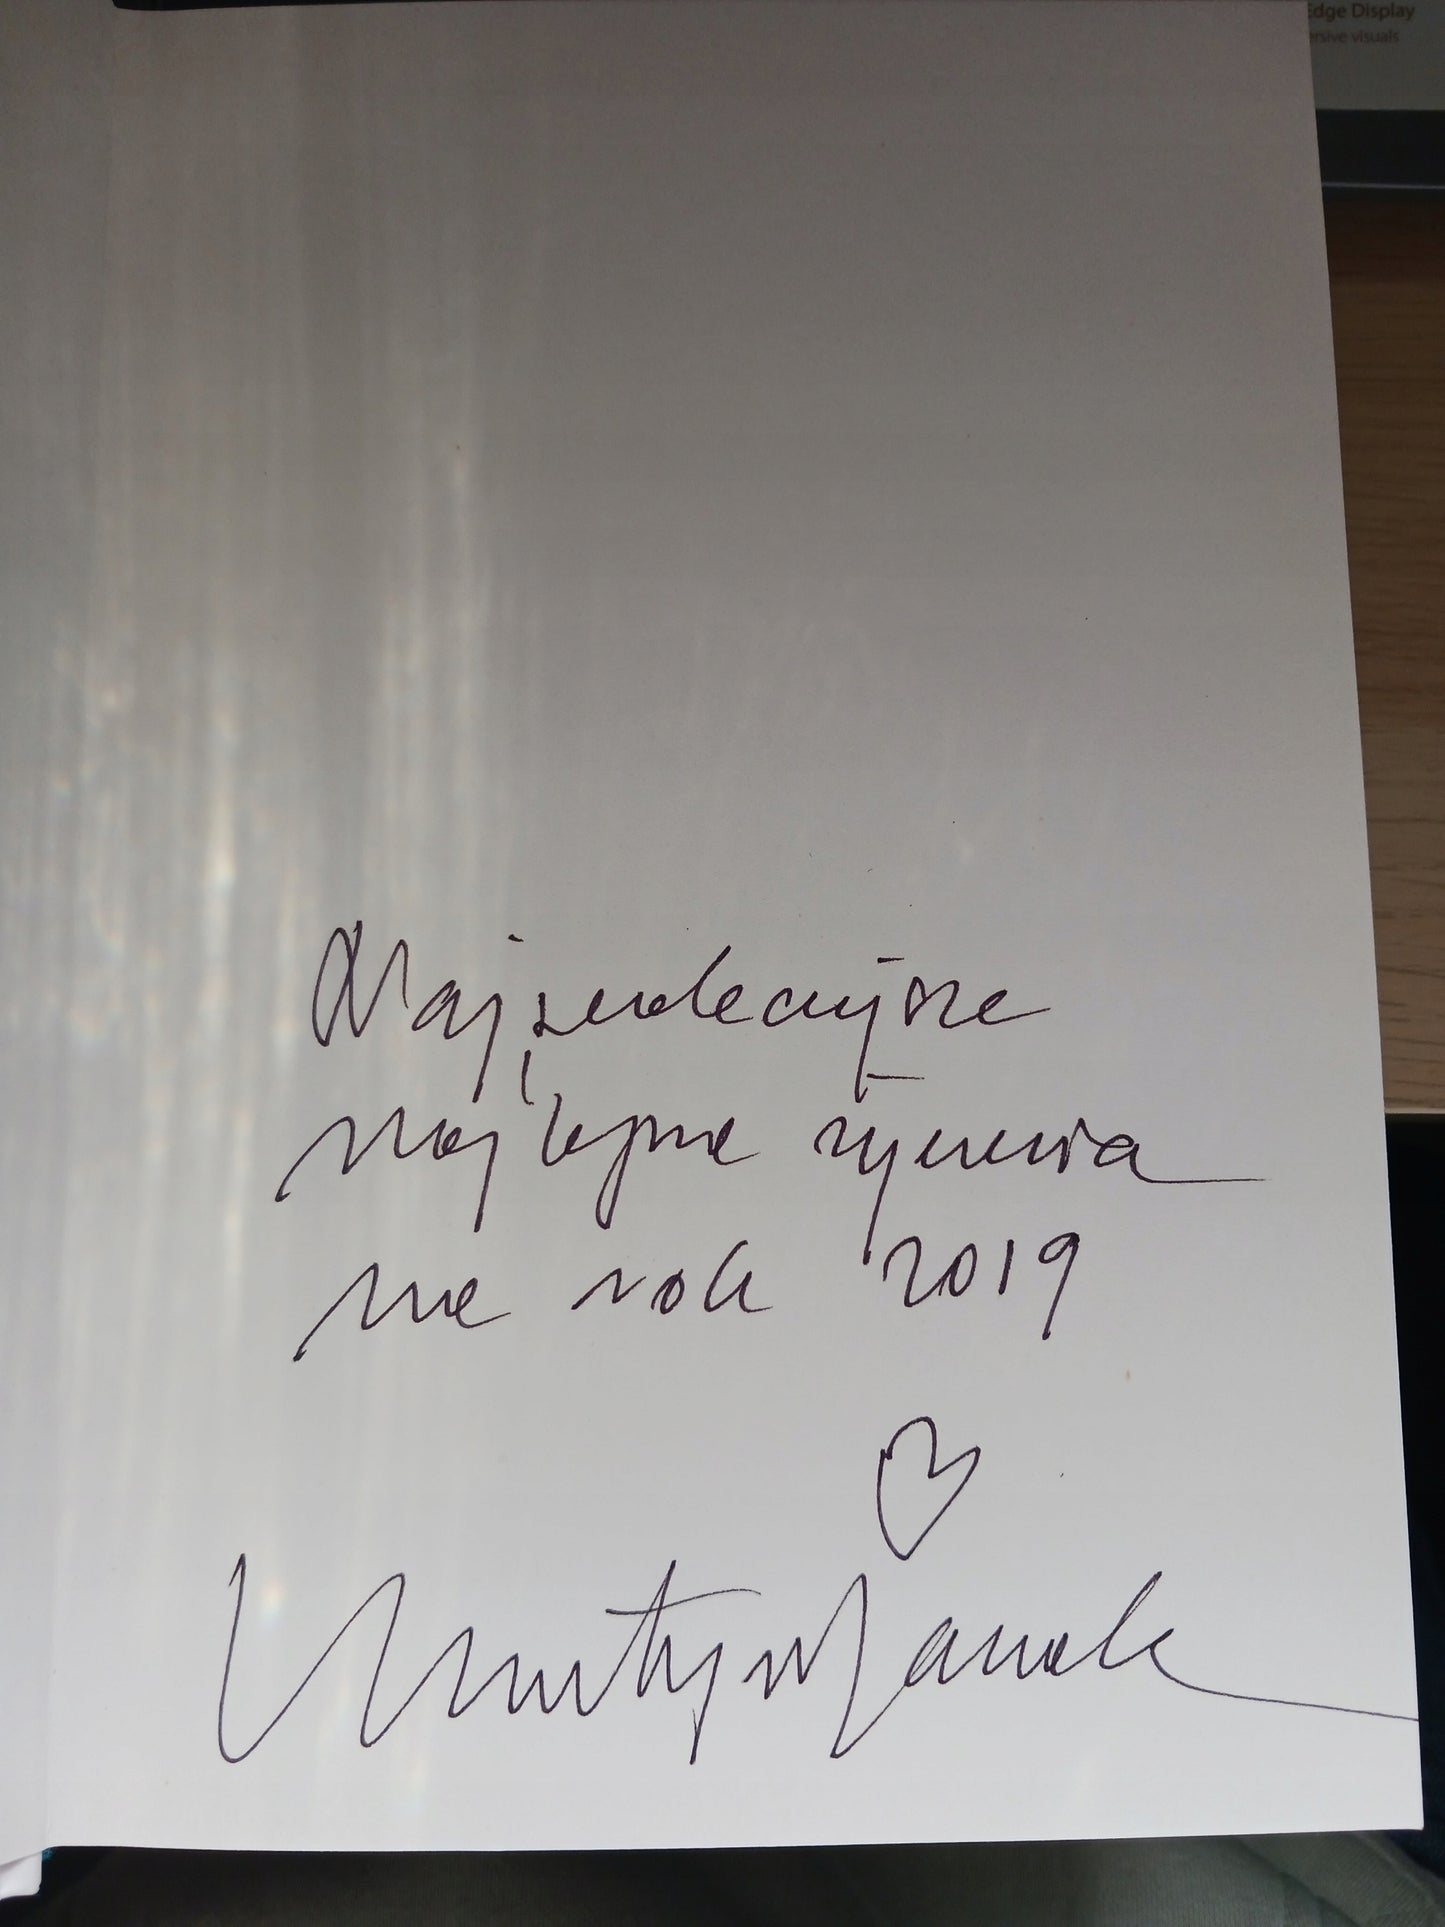 Edge Display
ersive visuals
Najserdeczniejsze
najlepsze życzenia
na rok 2019